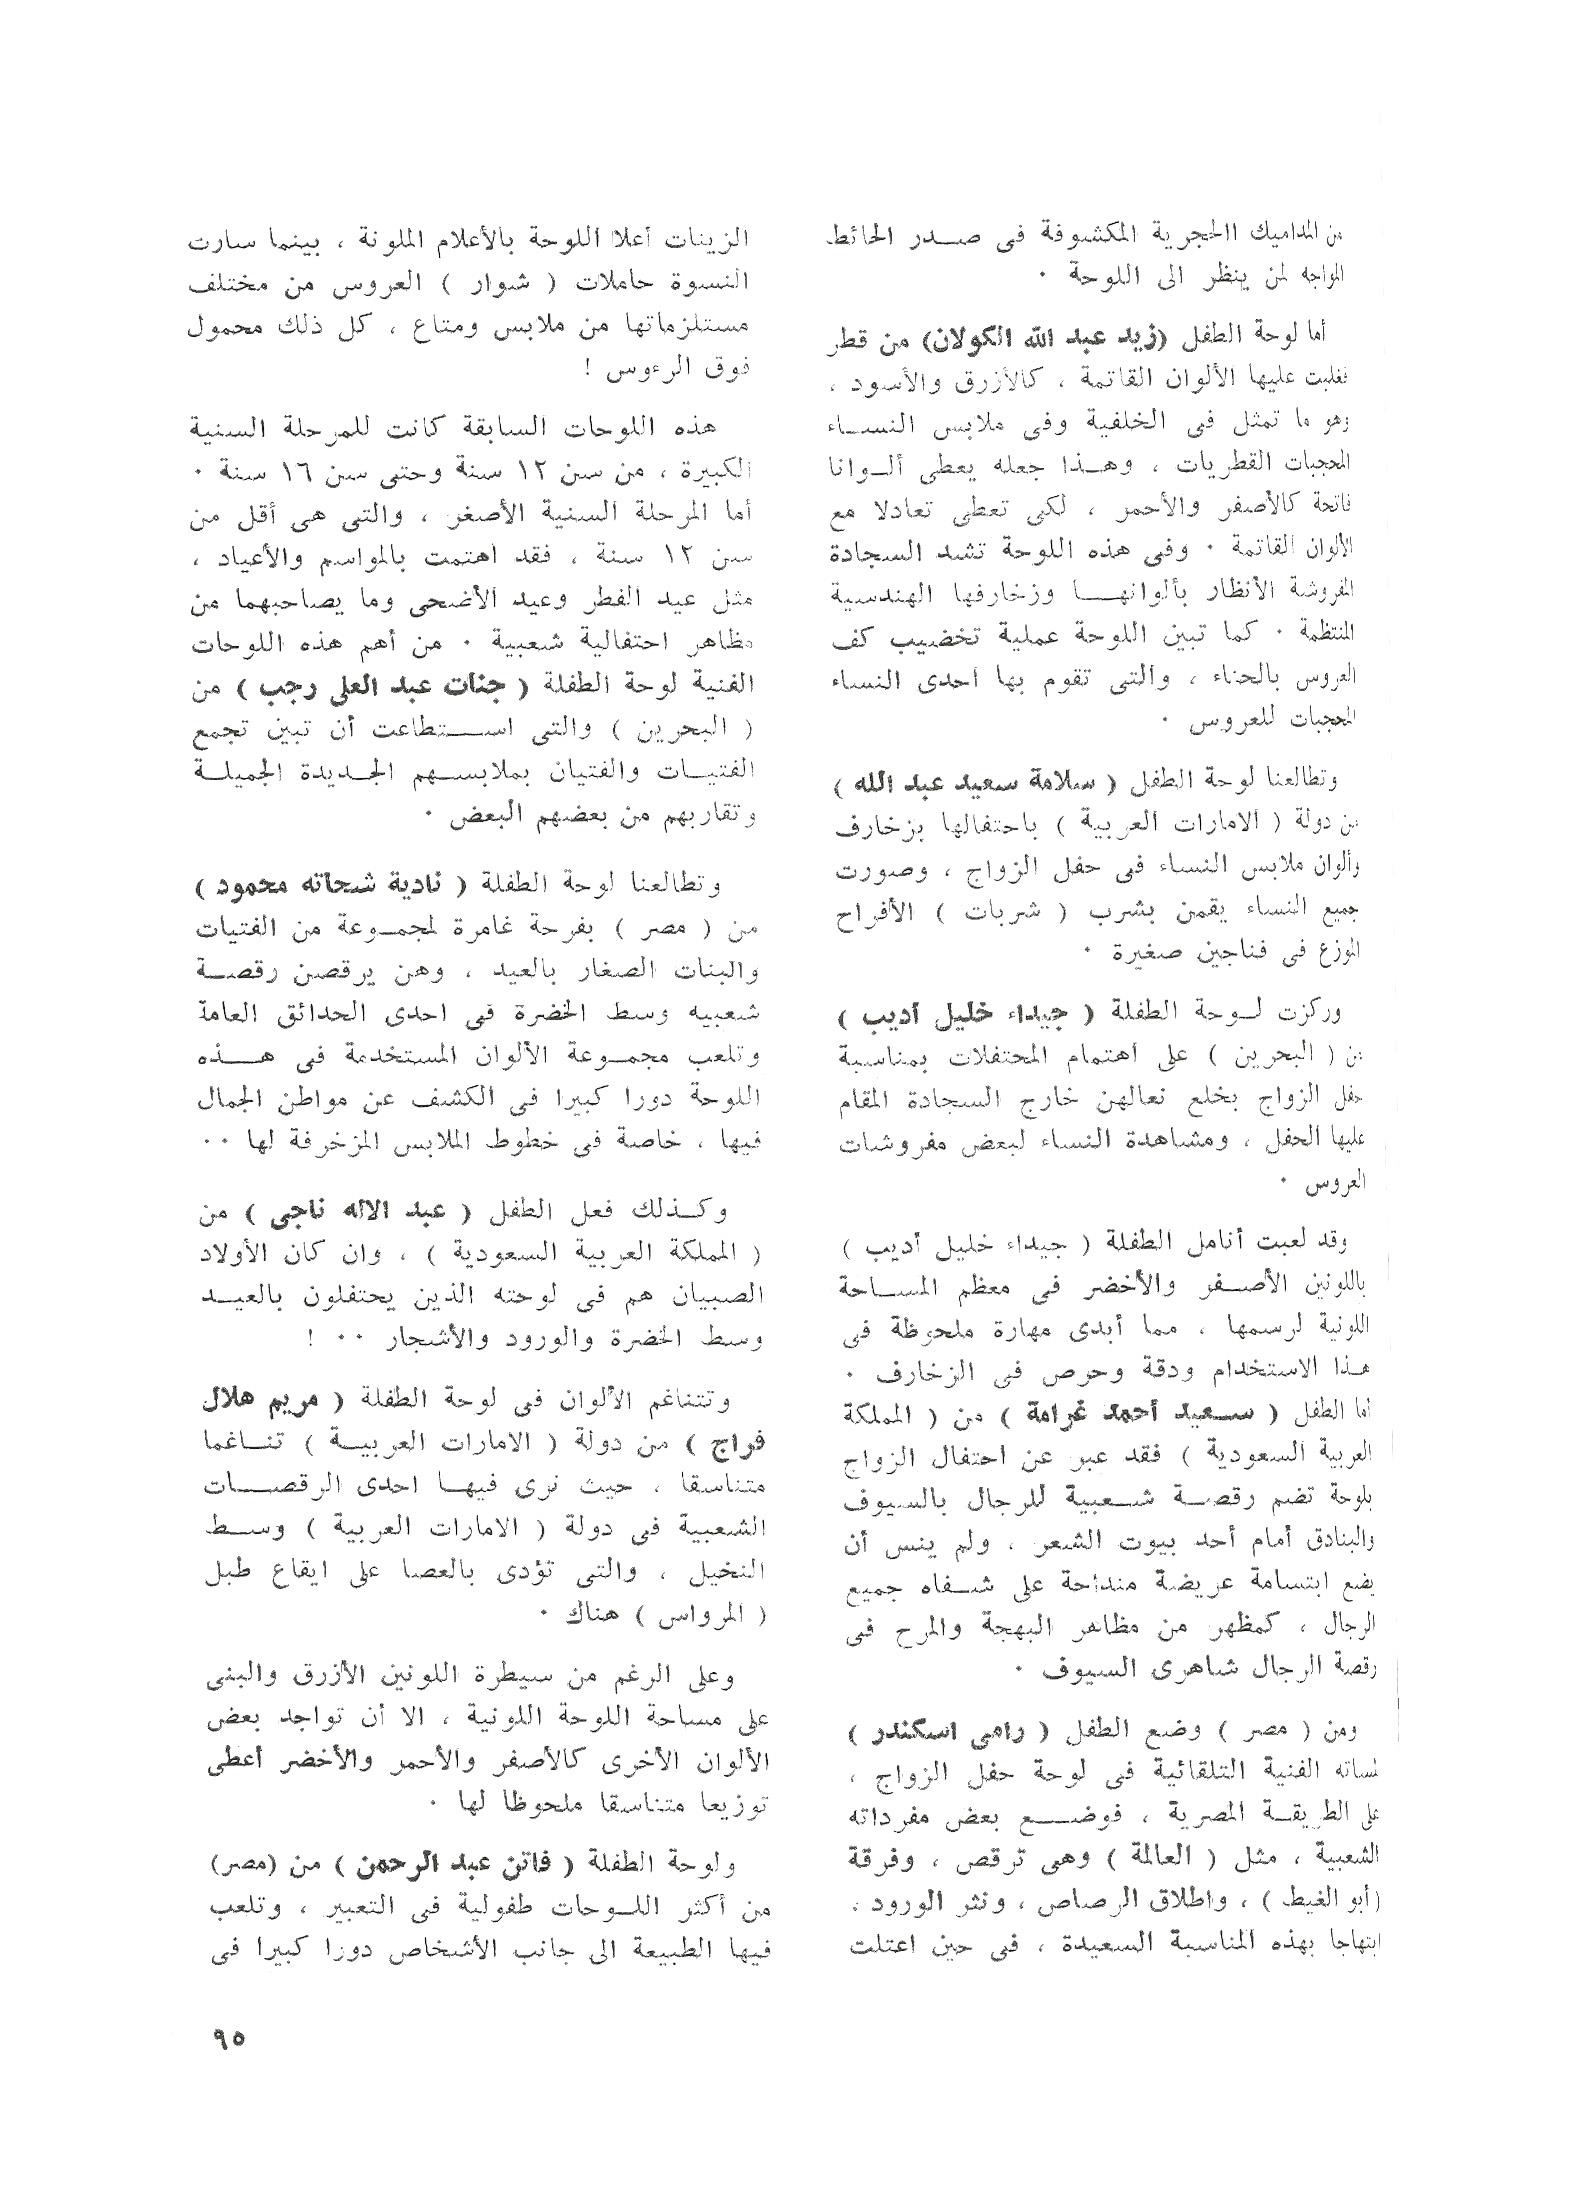 من المداميك االحجرية المكشوفة فى صدر الحائط
المواجه لمن ينظر الى اللوحة ٠
أما لوحة الطفل (زيد عبد الله الكولان) من قطر
فغلبت عليها الألوان القاتمة ، كالأزرق والأسود ،
وهو ما تمثل فى الخلفية وفى ملابس النساء
المحجبات القطريات ، وهذا جعله يعطى ألوانا
فاتحة كالأصفر والأحمر ، لكى تعطى تعادلا مع
الألوان القاتمة ٠ وفى هذه اللوحة تشد السجادة
المفروشة الأنظار بألوانها وزخارفها الهندسية
المنتظمة ٠ كما تبين اللوحة عملية تخضيب كف
العروس بالحناء ، والتى تقوم بها أحدى النساء
المحجبات للعروس ٠
وتطالعنا لوحة الطفل ( سلامة سعيد عبد الله )
من دولة ( الامارات العربية ) باحتفالها بزخارف
وألوان ملابس النساء فى حفل الزواج ، وصورت
جميع النساء يقمن بشرب ( شربات ) الأفراح
الموزع فى فناجين صغيرة ٠
وركزت لوحة الطفلة ( جيداء خليل أديب )
من ( البحرين ) على أهتمام المحتفلات بمناسبة
حفل الزواج بخلع نعالهن خارج السجادة المقام
عليها الحفل ، ومشاهدة النساء لبعض مفروشات
العروس ٠
وقد لعبت أنامل الطفلة ( جيداء خليل أديب )
باللونين الأصفر والأخضر فى معظم المساحة
اللونية لرسمها ، مما أبدى مهارة ملحوظة فى
هذا الاستخدام ودقة وحرص فى الزخارف ٠
أما الطفل ( سعيد أحمد غرامة ) من ( المملكة
العربية السعودية ) فقد عبر عن احتفال الزواج
بلوحة تضم رقصة شعبية للرجال بالسيوف
والبنادق أمام أحد بيوت الشعر ، ولم ينس أن
يضع ابتسامة عريضة منداحة على شفاه جميع
الرجال ، كمظهر من مظاهر البهجة والمرح فى
رقصة الرجال شاهرى السيوف ٠
ومن ( مصر ) وضع الطفل ( رامى اسكندر )
لمساته الفنية التلقائية فى لوحة حفل الزواج ،
على الطريقة المصرية ، فوضع بعض مفرداته
الشعبية ، مثل ( العالمة ) وهى ترقص ، وفرقة
(أبو الغيط ) ، واطلاق الرصاص ، ونثر الورود ،
ابتهاجا بهذه المناسبة السعيدة ، فى حين اعتلت
الزينات أعلا اللوحة بالأعلام الملونة ، بينما سارت
النسوة حاملات ( شوار ) العروس من مختلف
مستلزماتها من ملابس ومتاع ، كل ذلك محمول
فوق الرءوس !
هذه اللوحات السابقة كانت للمرحلة السنية
الكبيرة ، من سن ١٢ سنة وحتى سن ١٦ سنة ٠
أما المرحلة السنية الأصغر ، والتى هى أقل من
سن ١٢ سنة ، فقد أهتمت بالمواسم والأعياد ،
مثل عيد الفطر وعيد الأضحى وما يصاحبهما من
مظاهر احتفالية شعبية ٠ من أهم هذه اللوحات
الفنية لوحة الطفلة ( جنات عبد العلى رجب ) من
( البحرين ) والتى استطاعت أن تبين تجمع
الفتيات والفتيان بملابسهم الجديدة الجميلة
وتقاربهم من بعضهم البعض ٠
وتطالعنا لوحة الطفلة ( نادية شحاته محمود )
من ( مصر ) بفرحة غامرة لمجموعة من الفتيات
والبنات الصغار بالعيد ، وهن يرقصن رقصة
شعبيه وسط الخضرة فى احدى الحدائق العامة
وتلعب مجموعة الألوان المستخدمة فى هذه
اللوحة دورا كبيرا فى الكشف عن مواطن الجمال
فيها ، خاصة فى خطوط الملابس المزخرفة لها ٠٠
وكذلك فعل الطفل ( عبد الاله ناجى ) من
( المملكة العربية السعودية ) ، وان كان الأولاد
الصبيان هم فى لوحته الذين يحتفلون بالعيد
وسط الخضرة والورود والأشجار ٠٠ !
وتتناغم الألوان فى لوحة الطفلة ( مريم هلال
فراج ) من دولة ( الامارات العربية ) تناغما
متناسقا ، حيث نرى فيها احدى الرقصات
الشعبية فى دولة ( الامارات العربية ) وسط
النخيل ، والتى تؤدى بالعصا على ايقاع طبل
( المرواس ) هناك ٠
وعلى الرغم من سيطرة اللونين الأزرق والبنى
على مساحة اللوحة اللونية ، الا أن تواجد بعض
الألوان الأخرى كالأصفر والأحمر والأخضر أعطى
توزيعا متناسقا ملحوظا لها ٠
ولوحة الطفلة ( فاتن عبد الرحمن ) من (مصر)
من أكثر اللوحات طفولية فى التعبير ، وتلعب
فيها الطبيعة الى جانب الأشخاص دورا كبيرا فى
٩٥